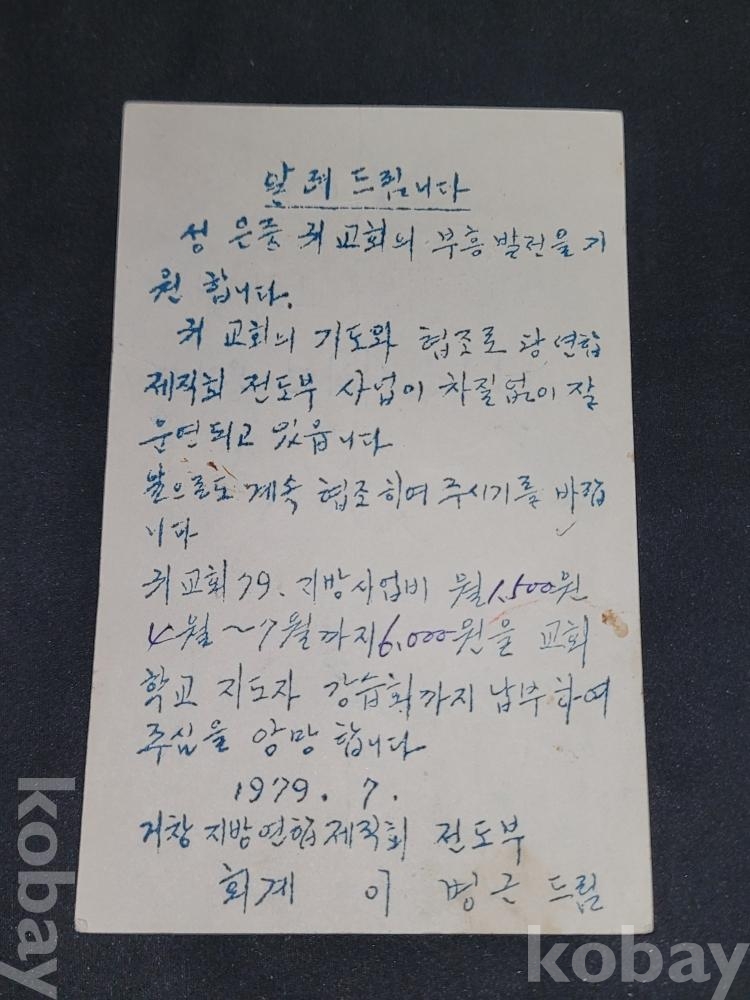 알려 드립니다
성 은중 귀 교회의 부흥 발전을 기
원 합니다.
귀 교회의 기도와 협조로 당 연합
제직회 전도부 사업이 차질없이 잘
운영되고 있읍니다
앞으로도 계속 협조하여 주시기를 바랍
니다
귀 교회 79. 지방사업비 월 1,500원
4월~7월까지 6,000원을 교회
학교 지도자 강습회까지 납부하여
주심을 앙망 합니다
1979. 7.
거창 지방연합제직회 전도부
회계 이 병근 드림
kobay
kobay